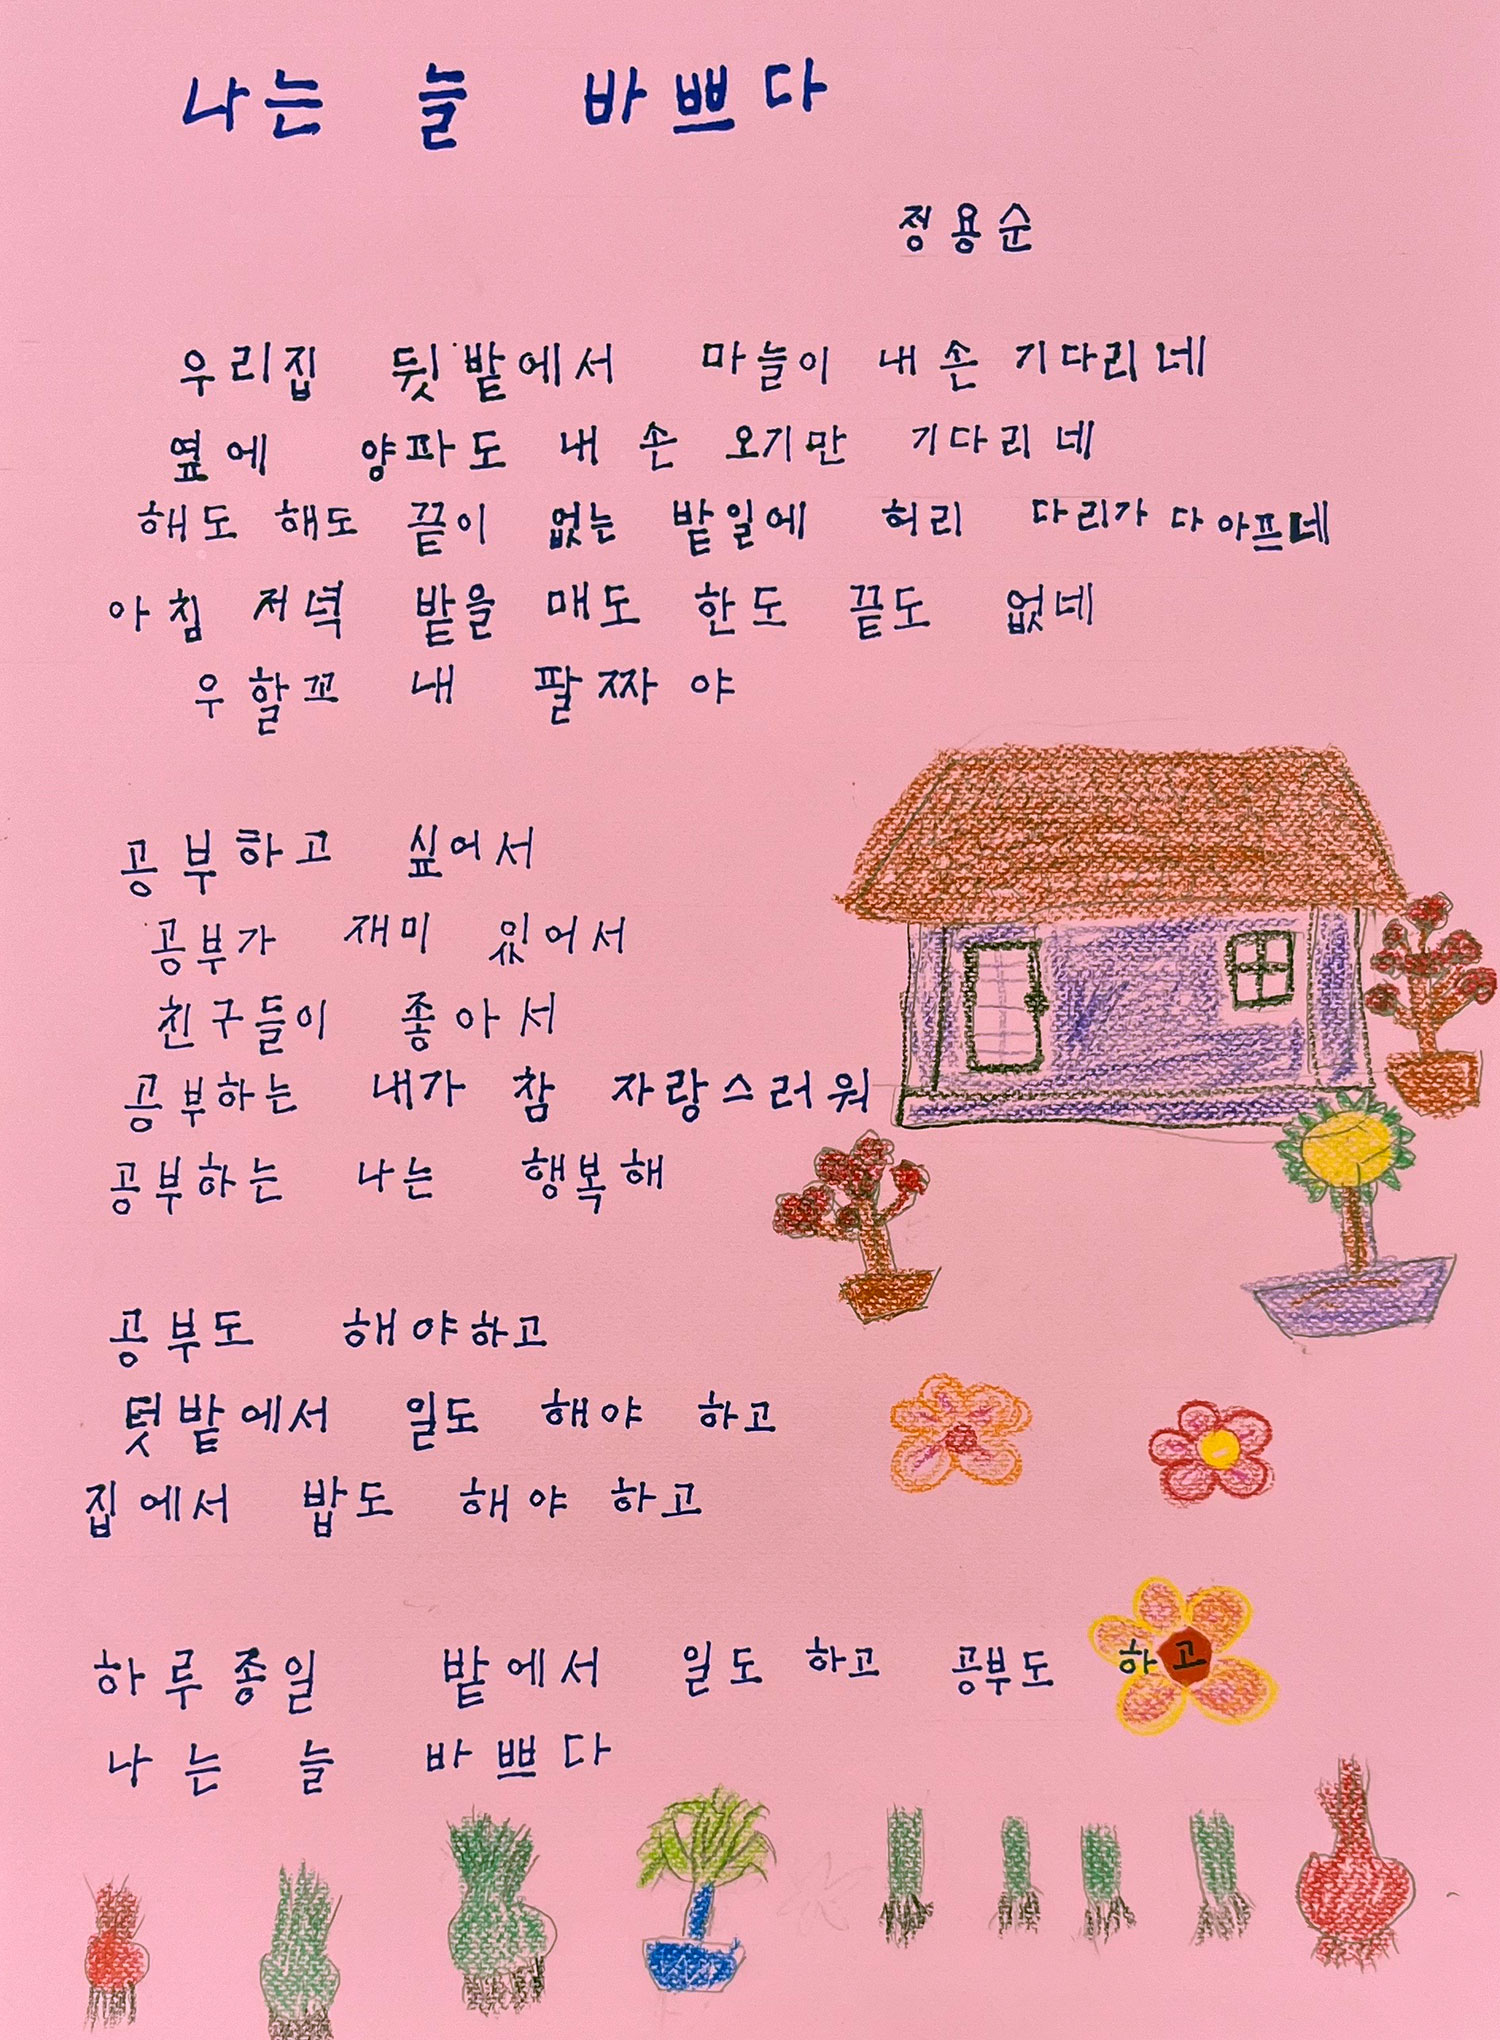 나는 늘 바쁘다
정용순
우리집 뒷밭에서 마늘이 내손 기다리네
옆에 양파도 내 손 오기만 기다리네
해도 해도 끝이 없는 밭일에 허리 다리가 다 아프네
아침 저녁 밭을 매도 한도 끝도 없네
우할꼬 내 팔짜야
공부하고 싶어서
공부가 재미 있어서
친구들이 좋아서
공부하는 내가 참 자랑스러워
공부하는 나는 행복해
공부도 해야하고
텃밭에서 일도 해야 하고
집에서 밥도 해야 하고
하루종일 밭에서 일도 하고 공부도 하고
나는 늘 바쁘다